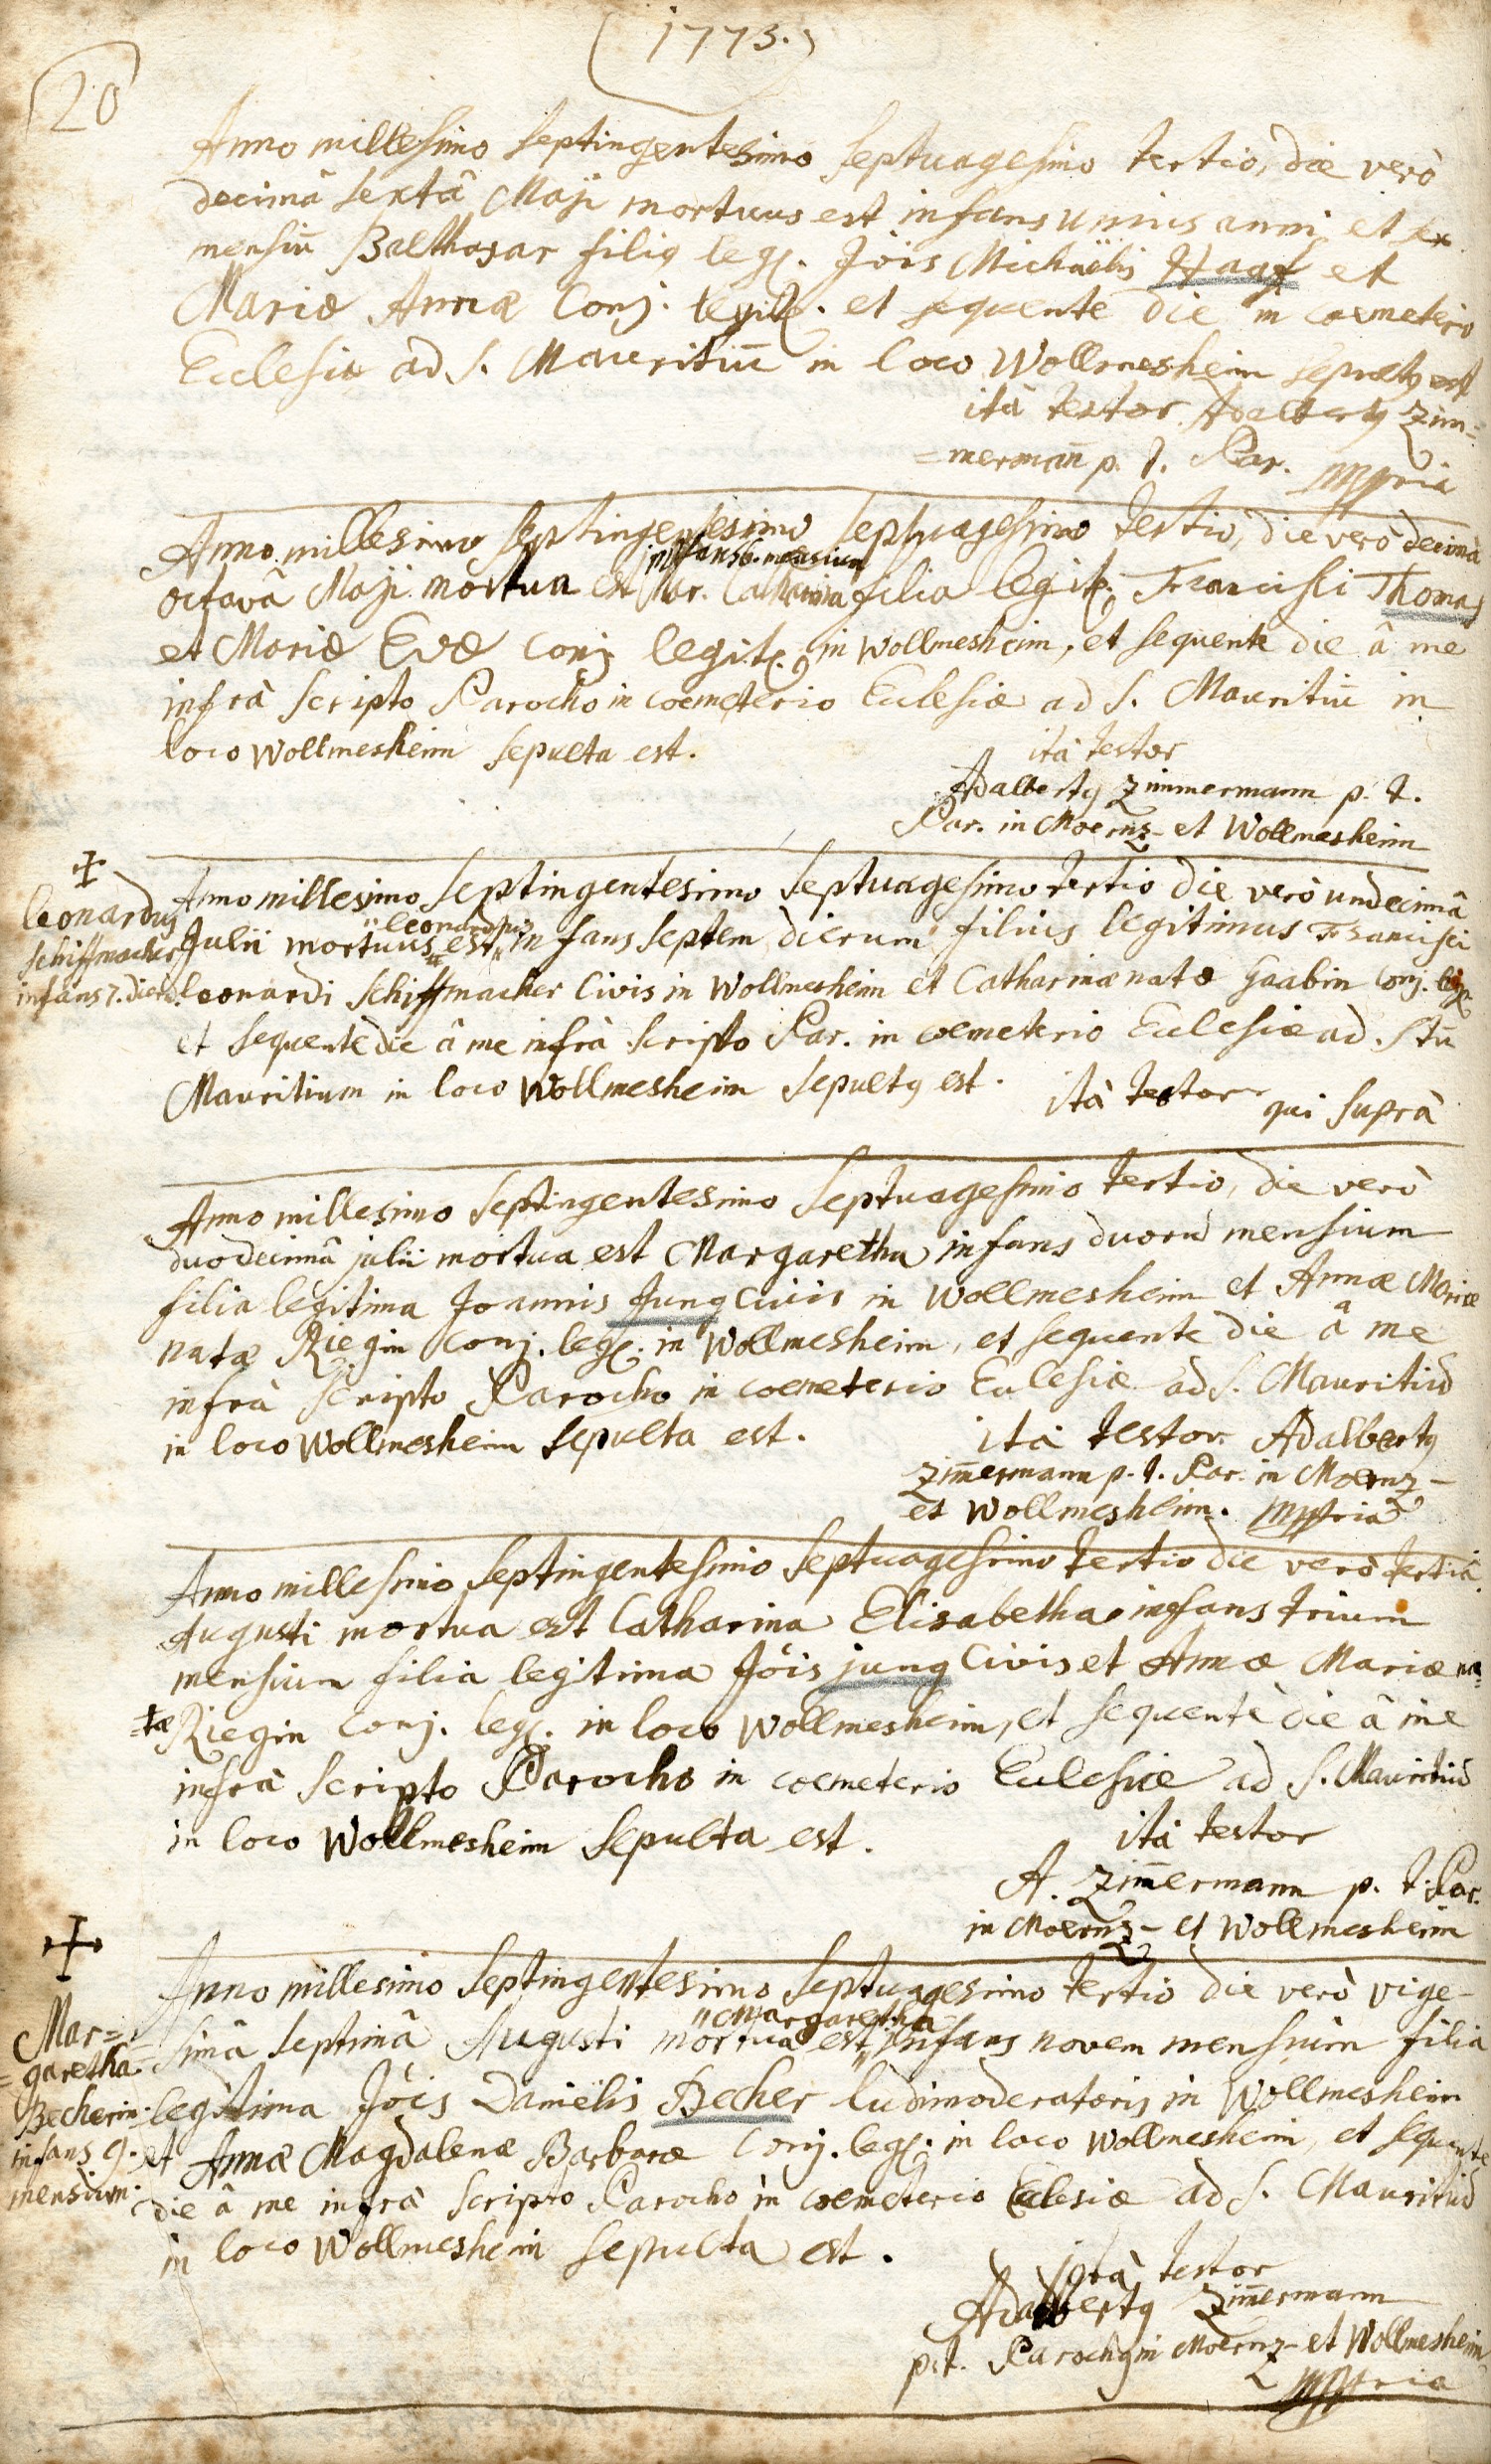 (1773.)
20
Anno millesimo septingentesimo septuagesimo tertio, die verò
decimâ sextâ Maji mortuus est infans unius anni et sex
mensiū Balthasar filiq legit. Jōis Michaëlis Haaf et
Mariæ Annæ Conj. legit. et sequente die in coemeterio
Ecclesiæ ad S. Mauritiū in loco Wollmesheim sepultq est
ità testor Adalbertq Zim=
=merman̄ p. t. Par. mppria
Anno millesimo septingentesimo septuagesimo tertio, die verò decimâ
infans 6. mensium
octavâ Maji mortua est Mar. Catharina filia legit. Francisci Thomas
et Mariæ Evæ Conj. legit. in Wollmesheim, et sequente die â me
infrà scripto Parocho in coemeterio Eclesiæ ad S. Mauritiū in
loco Wollmesheim sepulta est.
ità testor
Adalbertq Zimmermann p. t.
Par. in Moernz- et Wollmesheim
✝
Leonardus
Schiffmacher
infans 7. dierū.
Anno millesimo septingentesimo septuagesimo tertio die verò undecimâ
"Leonardus
Julii mortuus est," infans septem dierum filius legitimus Francisci
Leonardi Schiffmacher Civis in Wollmesheim et Catharinæ natæ Gaabin Conj. leg.
et sequente die â me infrà scripto Par. in coemeterio Eclesiæ ad Stū
Mauritium in loco Wollmesheim sepultq est. ità testor qui suprà
Anno millesimo septingentesimo septuagesimo tertio, die verò
duodecimâ julii mortua est Margaretha infans duorū mensium
filia legitima Joannis Jung Civis in Wollmesheim et Annæ Mariæ
natæ Riegin conj. leg. in Wollmesheim, et sequente die â me
infrà scripto Parocho in coemeterio Eclesiæ ad S. Mauritiū
in loco Wollmesheim sepulta est. ità testor Adalbertq
Zim̄ermann p. t. Par. in Moernz-
et Wollmesheim. mppria
Anno millesimo septingentesimo septuagesimo tertio die verò tertiâ
Augusti mortua est Catharina Elisabetha infans trium
mensium filia legitima Jōis jung Civis et Annæ Mariæ na=
=tæ Riegin Conj. leg. in loco Wollmesheim, et sequente die â me
infrà scripto Parocho in coemeterio Eclesiæ ad S. Mauritiū
in loco Wollmesheim sepulta est. ità testor
A. Zim̄ermann p. t. Par.
in Moernz- et Wollmesheim
✝
Mar=
=garetha
Becherin
infans 9.
mensium.
Anno millesimo septingentesimo septuagesimo tertio die verò vige-
"Margaretha
simâ septimâ Augusti mortua est," infans novem mensium filia
legitima Jōis Daniëlis Becher ludimoderatoris in Wollmesheim
et Annæ Magdalenæ Barbaræ Conj. leg. in loco Wollmesheim, et sequente
die â me infrà scripto Parocho in coemeterio Eclesiæ ad S. Mauritiū
in loco Wollmesheim sepulta est.
ità testor
Adalbertq Zim̄ermann
p. t. Parochq in Moernz- et Wollmesheim
mppria